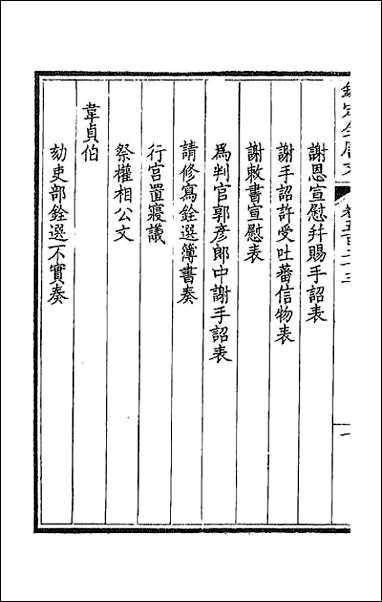 欽定全唐文 卷五百二十三 一
謝恩宣慰并賜手詔表
謝手詔許受吐蕃信物表
謝敕書宣慰表
為判官郭彥郎中謝手詔表
請修寫銓選簿書奏
行宮置寢議
祭權相公文
韋貞伯
劾吏部銓選不實奏